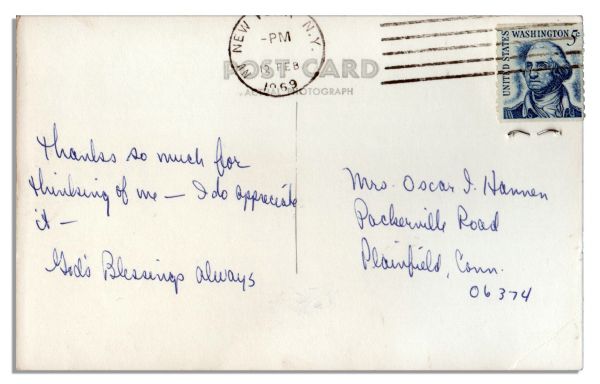 NEW YORK, N.Y.
-PM
FEB
1969
UNITED STATES
WASHINGTON 5c
POST CARD
ACTUAL PHOTOGRAPH
Thanks so much for
thinking of me — I do appreciate
it —
God's Blessings always
Mrs. Oscar I. Hannen
Packerville Road
Plainfield, Conn.
06374